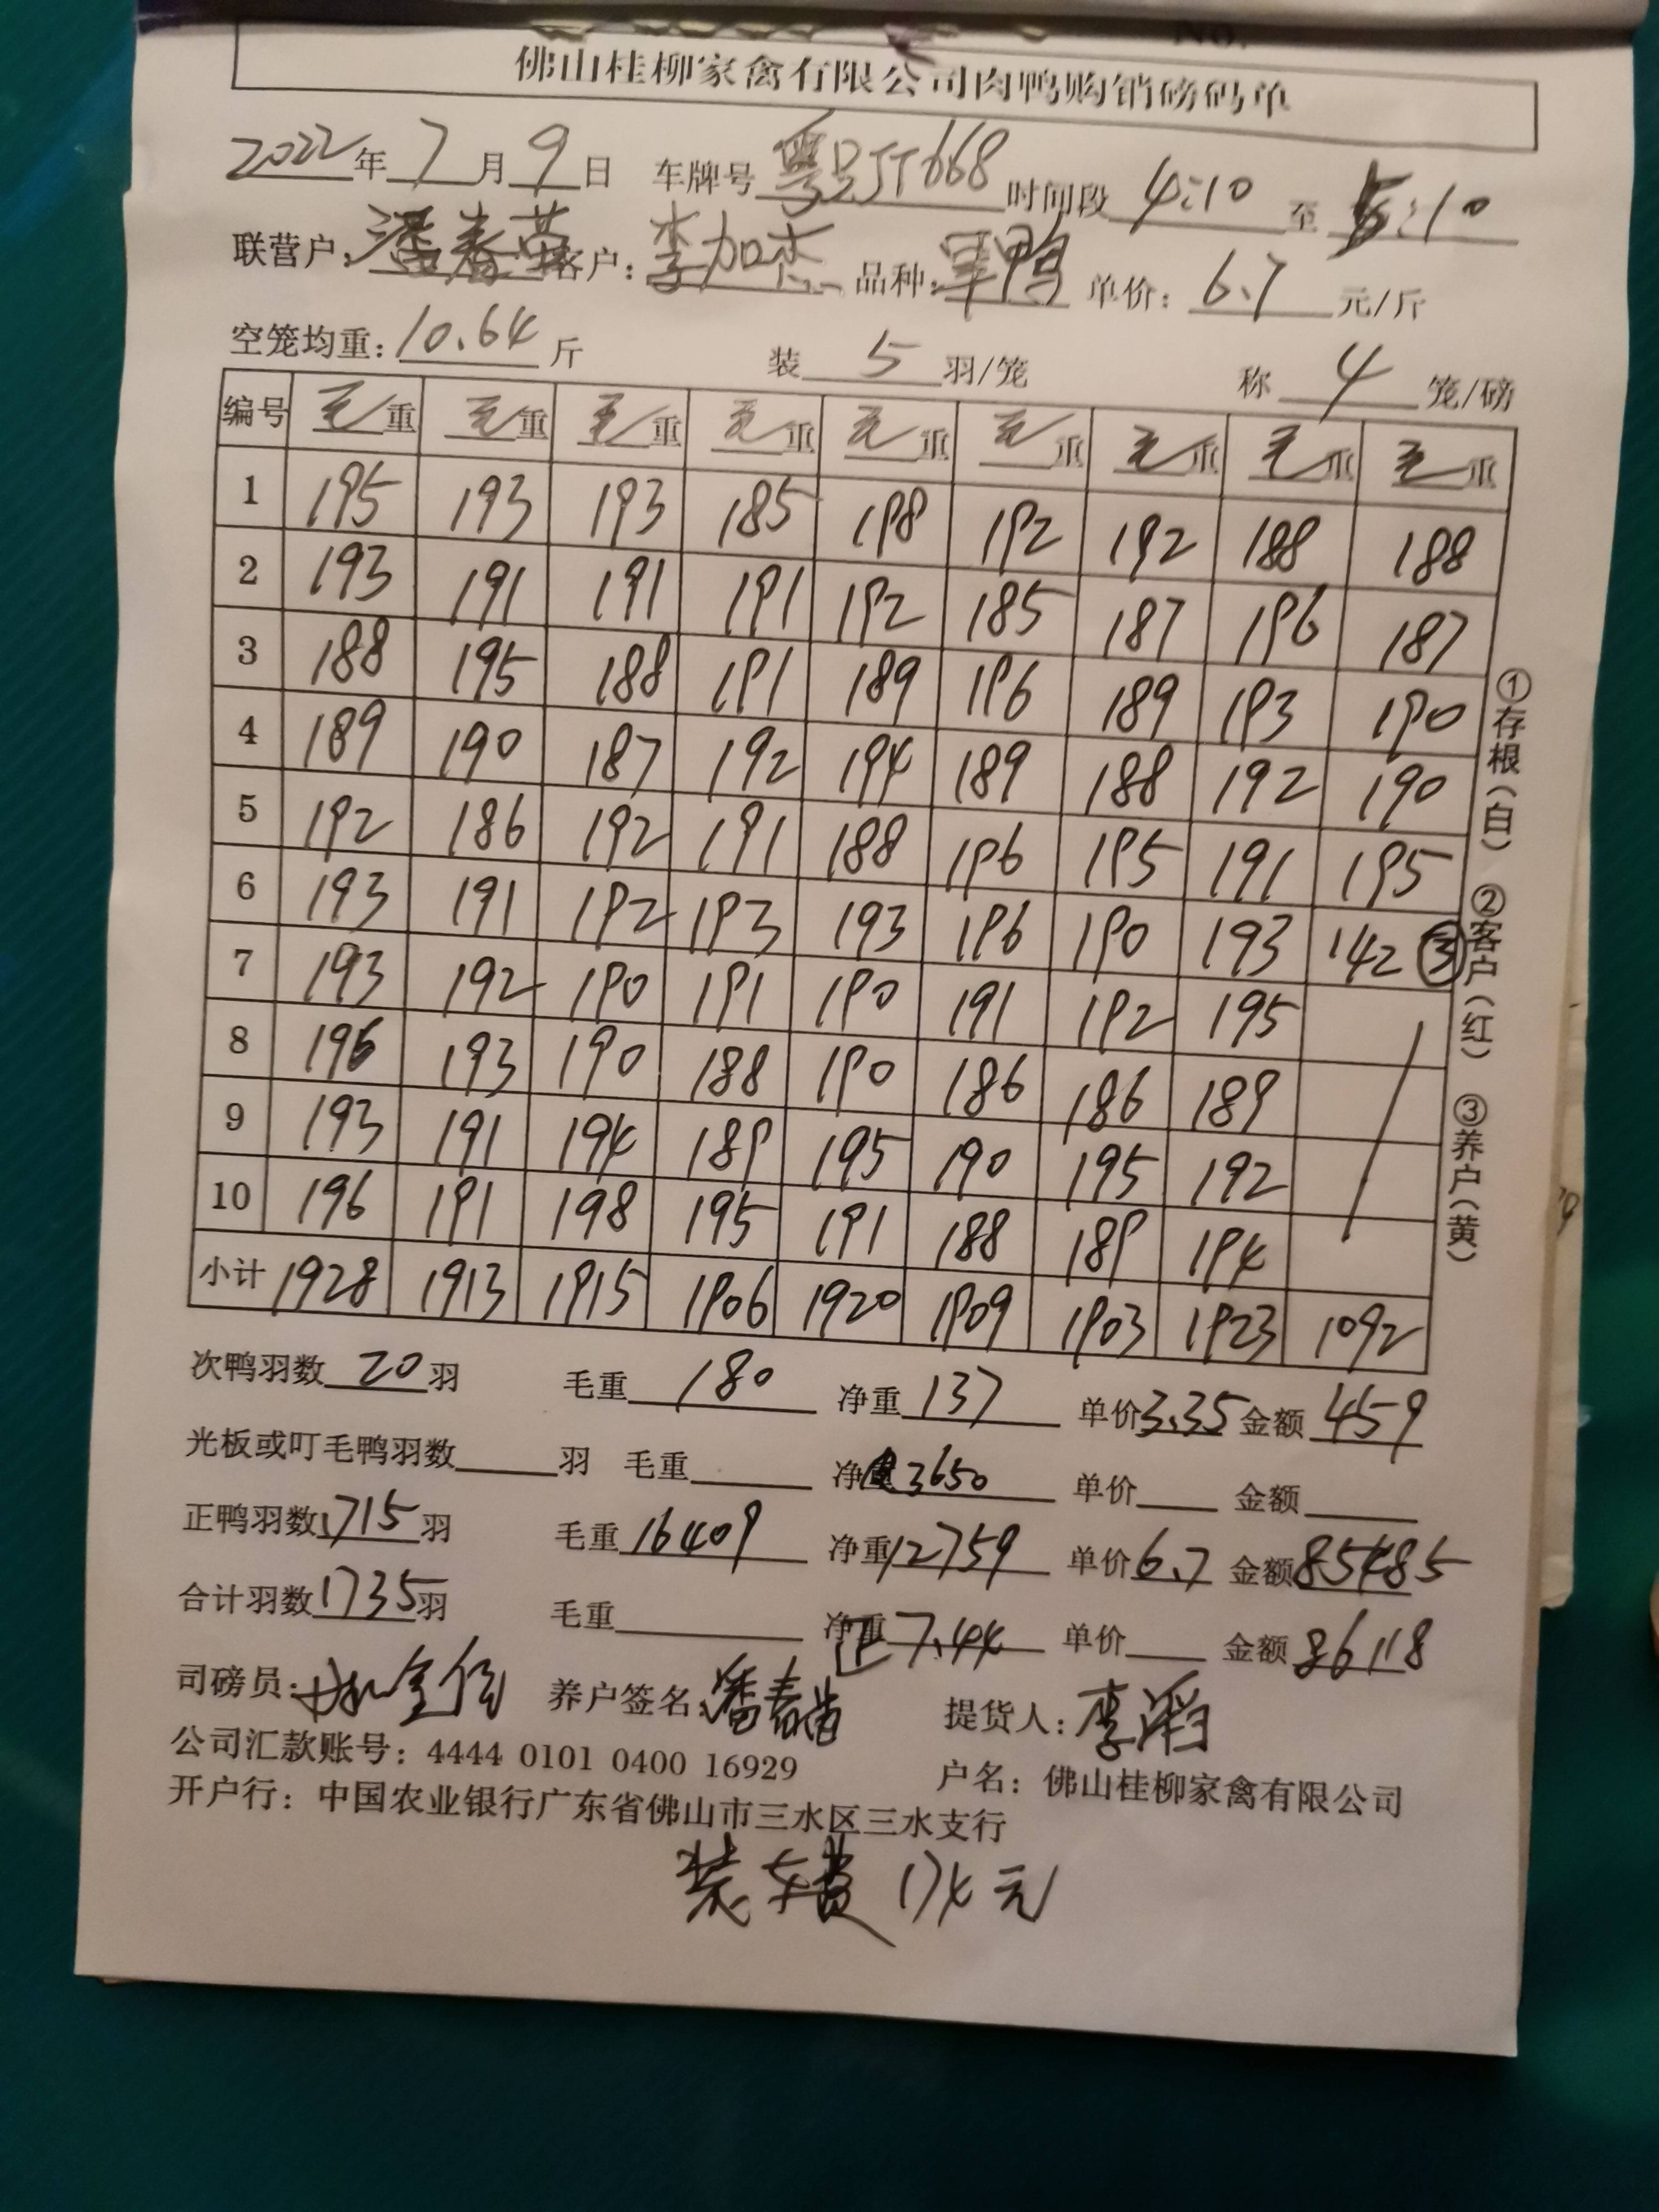 No.
佛山桂柳家禽有限公司肉鸭购销磅码单
2022年7月9日 车牌号 粤 JT668 时间段 4:10 至 5:10
联营户: 潘春 客户: 李加杰 品种: 鸭 单价: 6.7 元/斤
空笼均重: 10.64 斤 装 5 羽/笼 称 4 笼/磅
编号 毛重 毛重 毛重 毛重 毛重 毛重 毛重 毛重 毛重
1 195 193 193 185 198 192 192 188 188
2 193 191 191 191 192 185 187 196 187
3 188 195 188 191 189 196 189 193 190
4 189 190 187 192 194 189 188 192 190
5 192 186 192 191 188 196 195 191 195
6 193 191 192 193 193 196 190 193 142 ③
7 193 192 190 191 190 191 192 195
8 196 193 190 188 190 186 186 189
9 193 191 194 189 195 190 195 192
10 196 191 198 195 191 188 189 194
小计 1928 1913 1915 1906 1920 1909 1903 1923 1092
①存根(白) ②客户(红) ③养户(黄)
次鸭羽数 20 羽 毛重 180 净重 137 单价 3.35 金额 459
光板或叮毛鸭羽数 羽 毛重 净重 3650 单价 金额
正鸭羽数 1715 羽 毛重 16409 净重 12759 单价 6.7 金额 85485
合计羽数 1735 羽 毛重 净重 正 7.44 单价 金额 86118
司磅员: 养户签名: 潘春 提货人: 李滔
公司汇款账号: 4444 0101 0400 16929 户名: 佛山桂柳家禽有限公司
开户行: 中国农业银行广东省佛山市三水区三水支行
装车费 174元